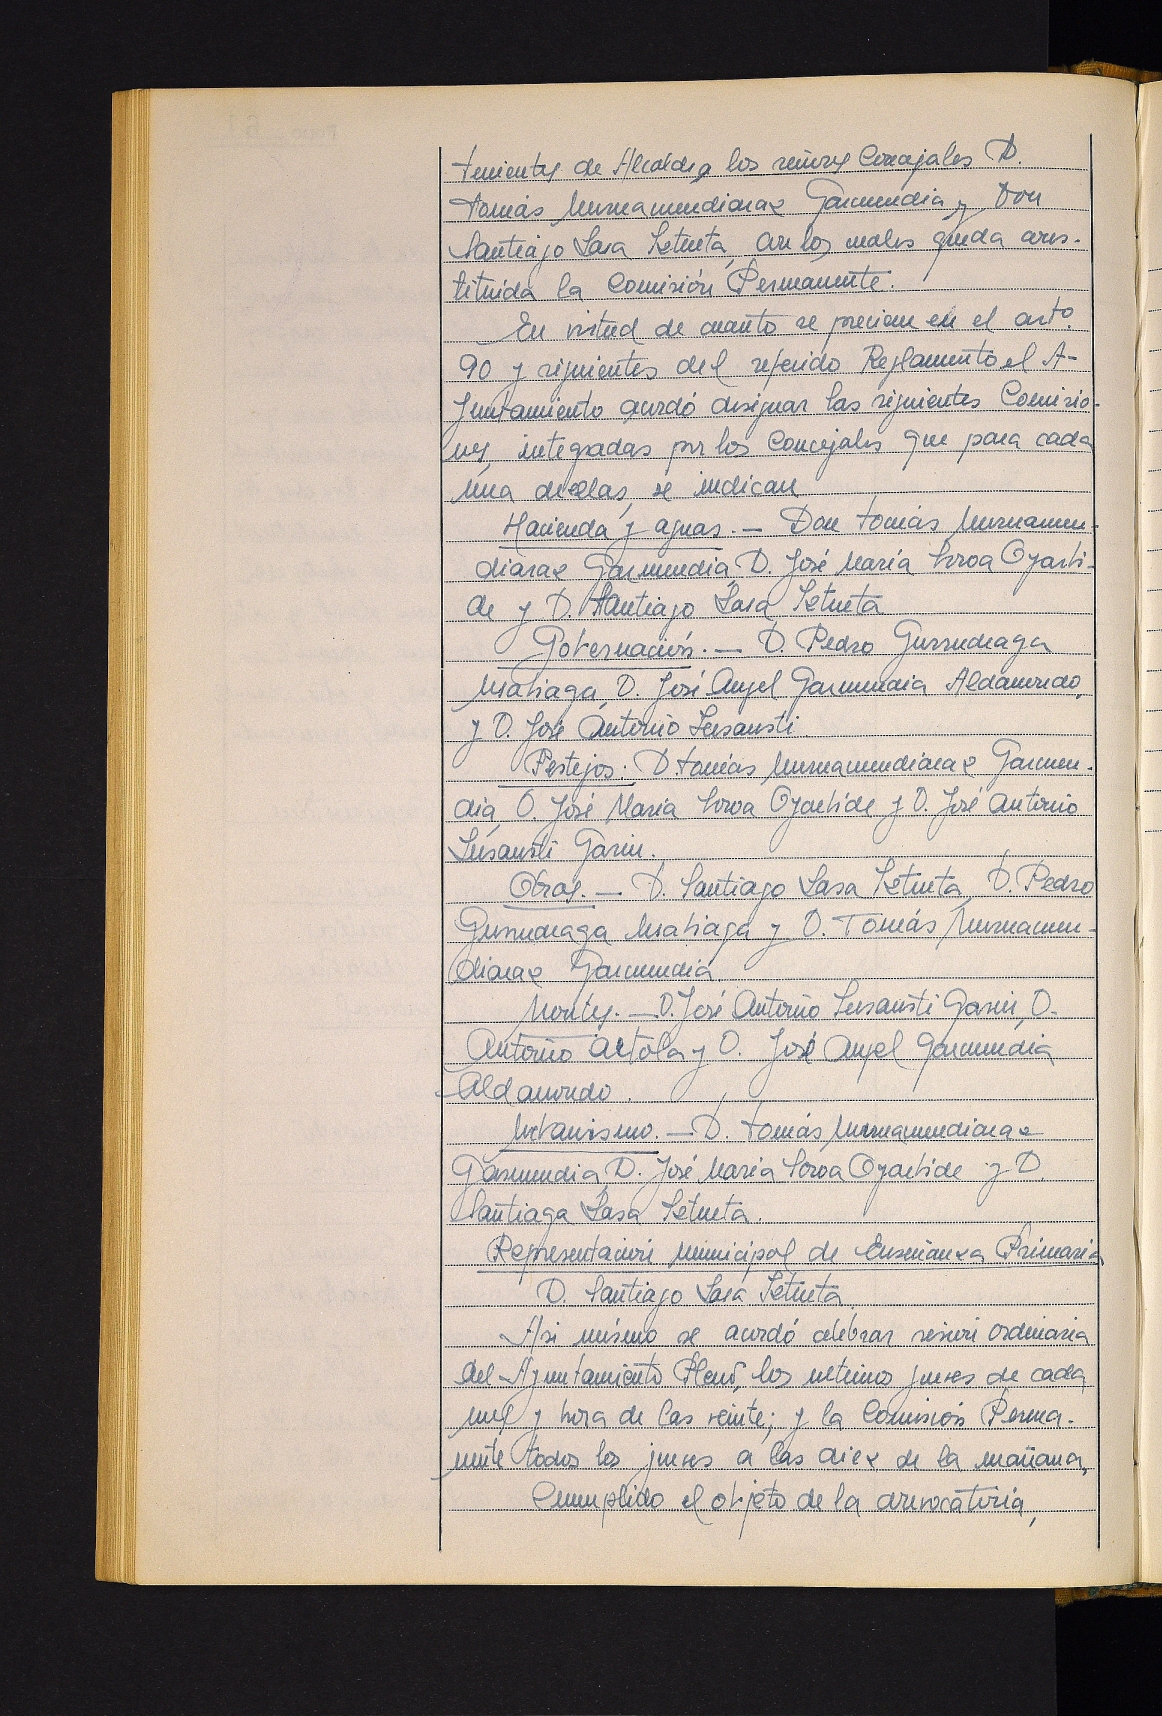 tenientes de Alcalde, los señores Concejales D.
Tomás Murnamendiaraz Garmendia y Don
Santiago Sasa Iztueta, con los cuales queda cons-
tituida la Comisión Permanente.
En virtud de cuanto se previene en el artº
90 y siguientes del referido Reglamento el A-
yuntamiento acordó designar las siguientes Comisio-
nes, integradas por los Concejales que para cada
una de ellas, se indican
Hacienda y aguas. — Don Tomás Murnamen-
diaraz Garmendia, D. José María Soroa Oyarbi-
de y D. Santiago Sasa Iztueta
Gobernación. — D. Pedro Gurruchaga
D. José Angel Garmendia Aldamondo,
y D. José Antonio Sarsansti.
Festejos. D. Tomás Murnamendiaraz Garmen-
dia, D. José Maria Soroa Oyarbide y D. José Antonio
Sarsansti Garin.
Obras. — D. Santiago Sasa Iztueta, D. Pedro
Gurruchaga y D. Tomás Murnamen-
diaraz Garmendia.
Montes. — D. José Antonio Sarsansti Garin, D.
Antonio Artola y D. José Angel Garmendia
Aldamondo.
Urbanismo. — D. Tomás Murnamendiaraz
Garmendia, D. José Maria Soroa Oyarbide y D.
Santiaga Sasa Iztueta.
Representación municipal de Enseñanza Primaria
D. Santiago Sasa Iztueta
Asi mismo se acordó celebrar sesión ordinaria
del Ayuntamiento Pleno, los ultimos jueves de cada
mes y hora de las veinte; y la Comisión Perma-
nente todos los jueves a las diez de la mañana.
Cumplido el objeto de la convocatoria,